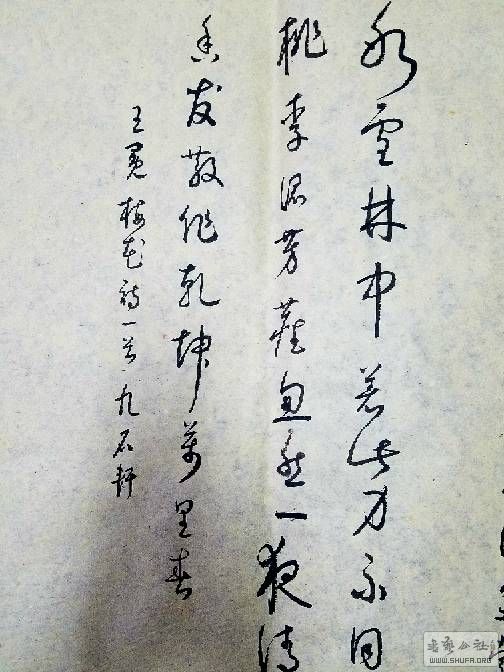 冰雪林中著此身不同
桃李混芳塵忽然一夜清
香发散作乾坤萬里春
王冕梅花诗一首 九石轩
书艺公社
WWW.SHUFA.ORG